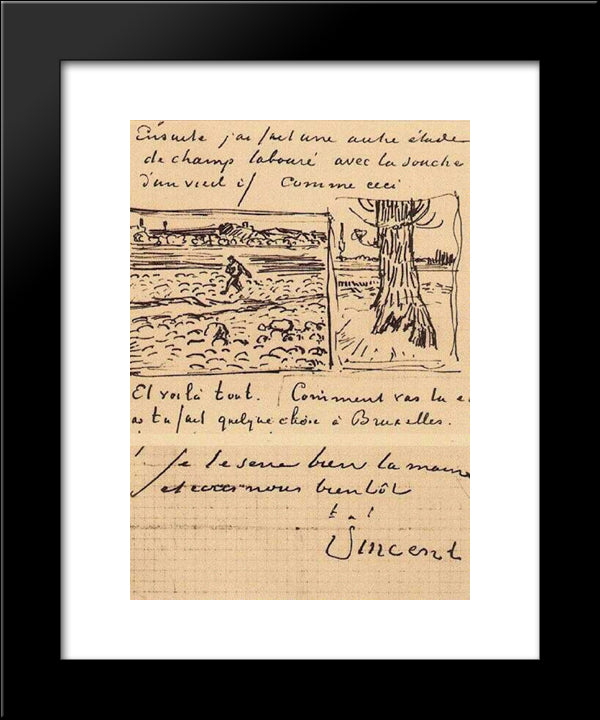 Ensuite j'ai fait une autre étude
de champ labouré avec la souche
d'un vieil if comme ceci
Et voilà tout. Comment vas tu
as tu fait quelque chose à Bruxelles.
Je te serre bien la main
nous bientôt
Vincent